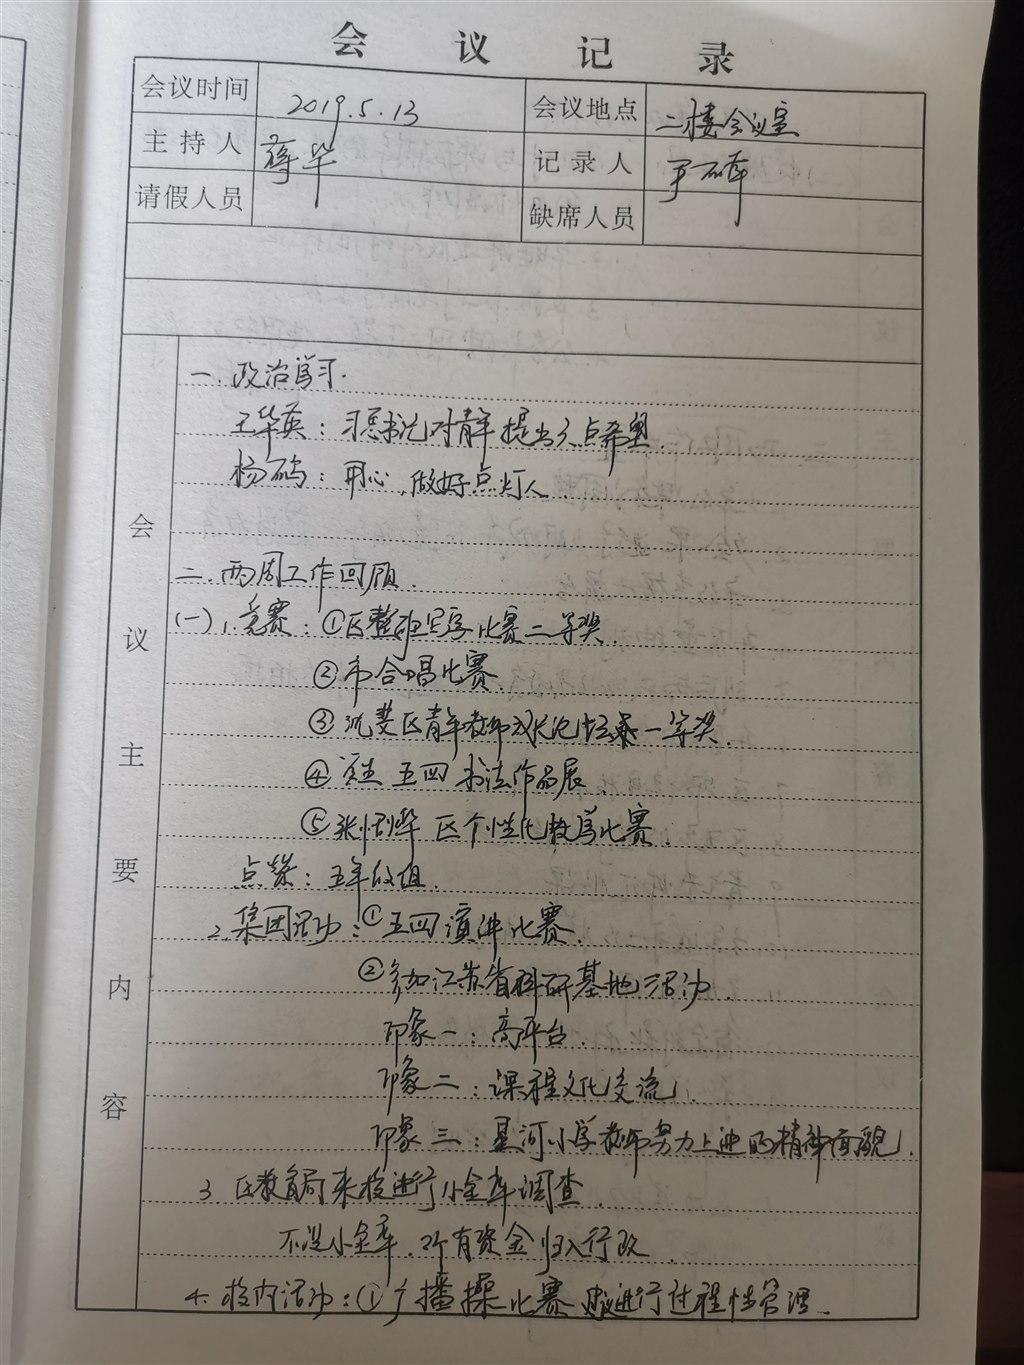 会议记录
会议时间 2019.5.13 会议地点 二楼会议室
主持人 蒋华 记录人
请假人员 缺席人员
会议主要内容
一.政治学习.
王华英:习总书记对青年提出六点希望.
杨砀:用心,做好点灯人.
二.两周工作回顾.
(一)1.竞赛:①区整班写字比赛二等奖.
②市合唱比赛.
③沈斐区青年教师成长论坛 一等奖.
④ 五四书法作品展.
⑤张 区个性化教学比赛.
点赞:五年级组.
2.集团活动:①五四演讲比赛.
②参加江苏省科研基地活动.
印象一:高平台.
印象二:课程文化交流.
印象三:星河小学教师努力上进的精神面貌.
3.区教育局来校进行小金库调查.
不设小金库.所有资金归入行政.
4.校内活动:①广播操比赛 进行过程性管理.